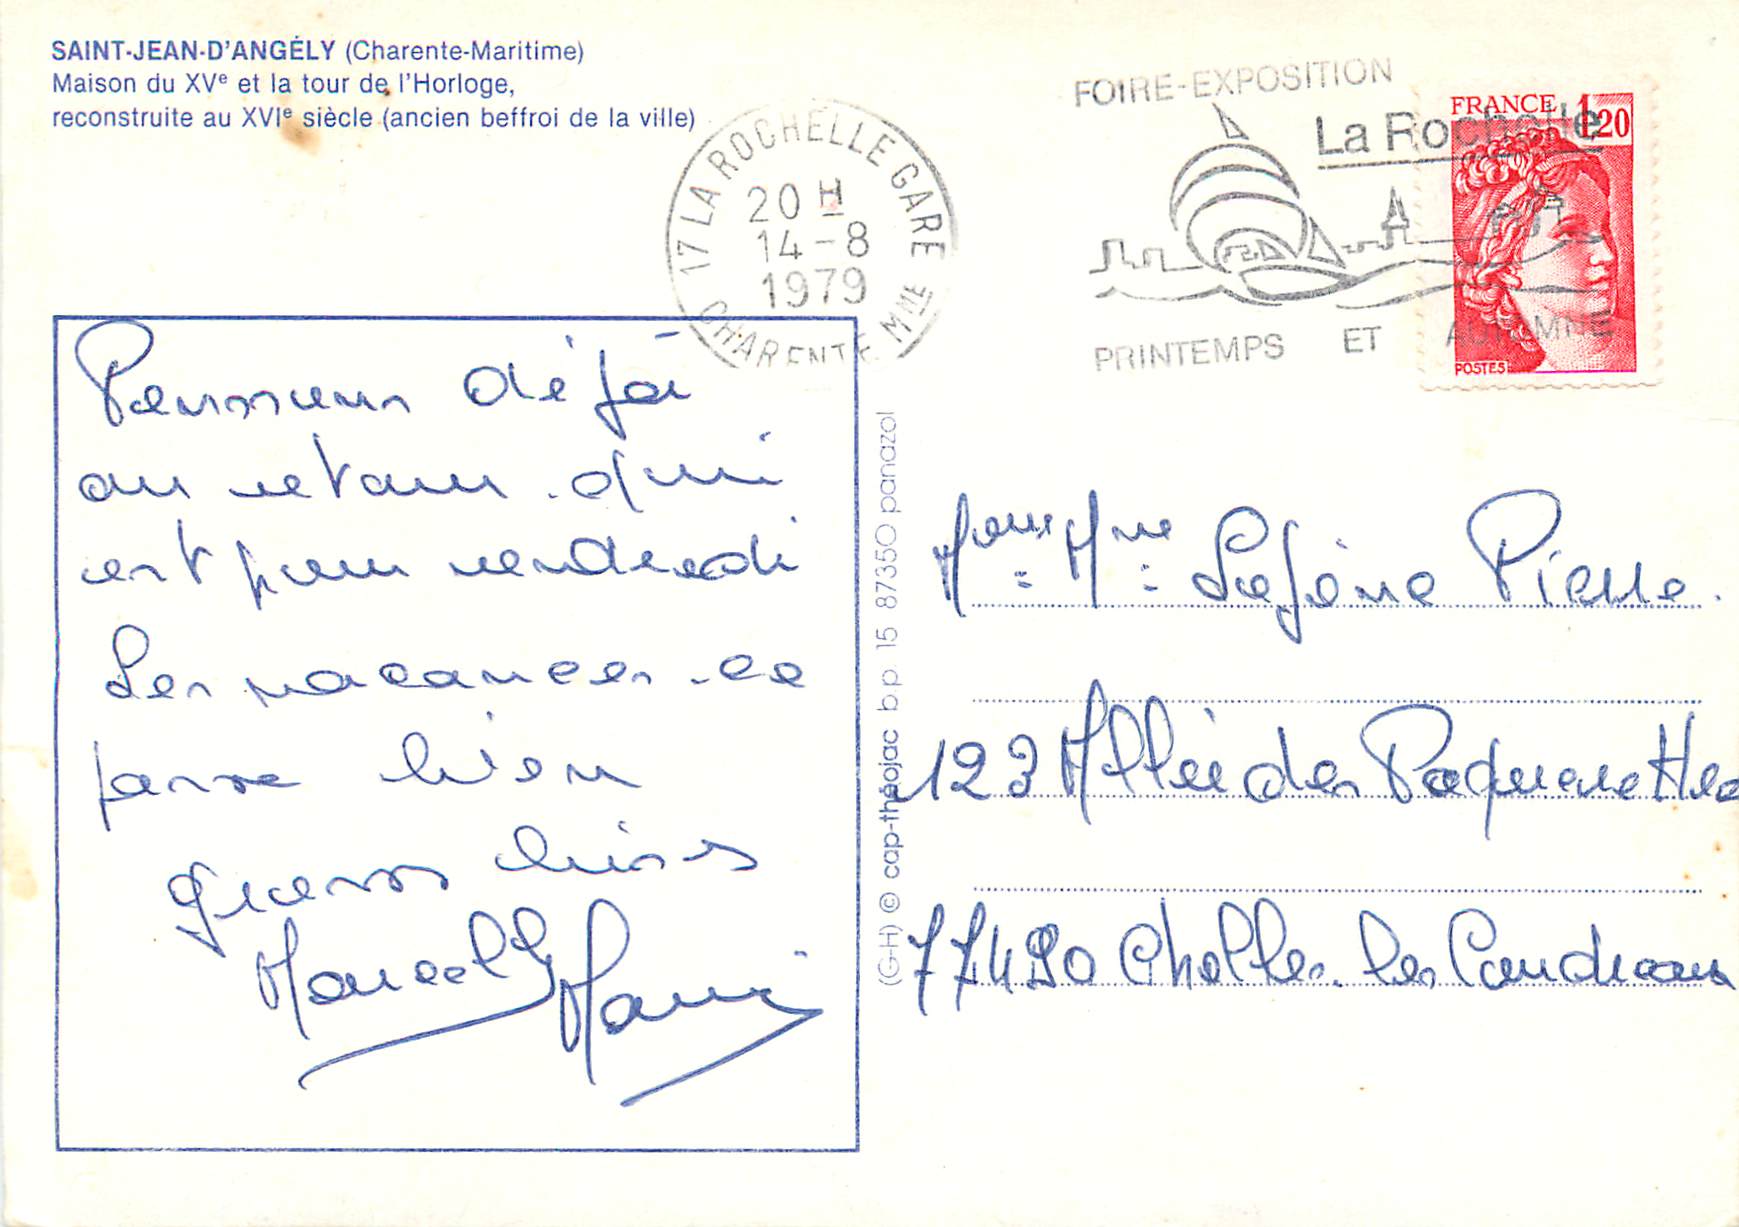 SAINT-JEAN-D'ANGÉLY (Charente-Maritime)
Maison du XVe et la tour de l'Horloge,
reconstruite au XVIe siècle (ancien beffroi de la ville)
17 LA ROCHELLE GARE
20 H
14-8
1979
CHARENTE MME
FOIRE-EXPOSITION
La Rochelle
PRINTEMPS ET AUTOMNE
FRANCE 1,20
POSTES
Pensons déjà
au retour qui
est pour vendredi
Les vacances ce
passe bien
gross bises
Marcel Mauri
(G-H) © cap-théojac bp 15 87350 panazol
Mme
Pierre
123 Allée des Paquerettes
Chelles les Coudreaux